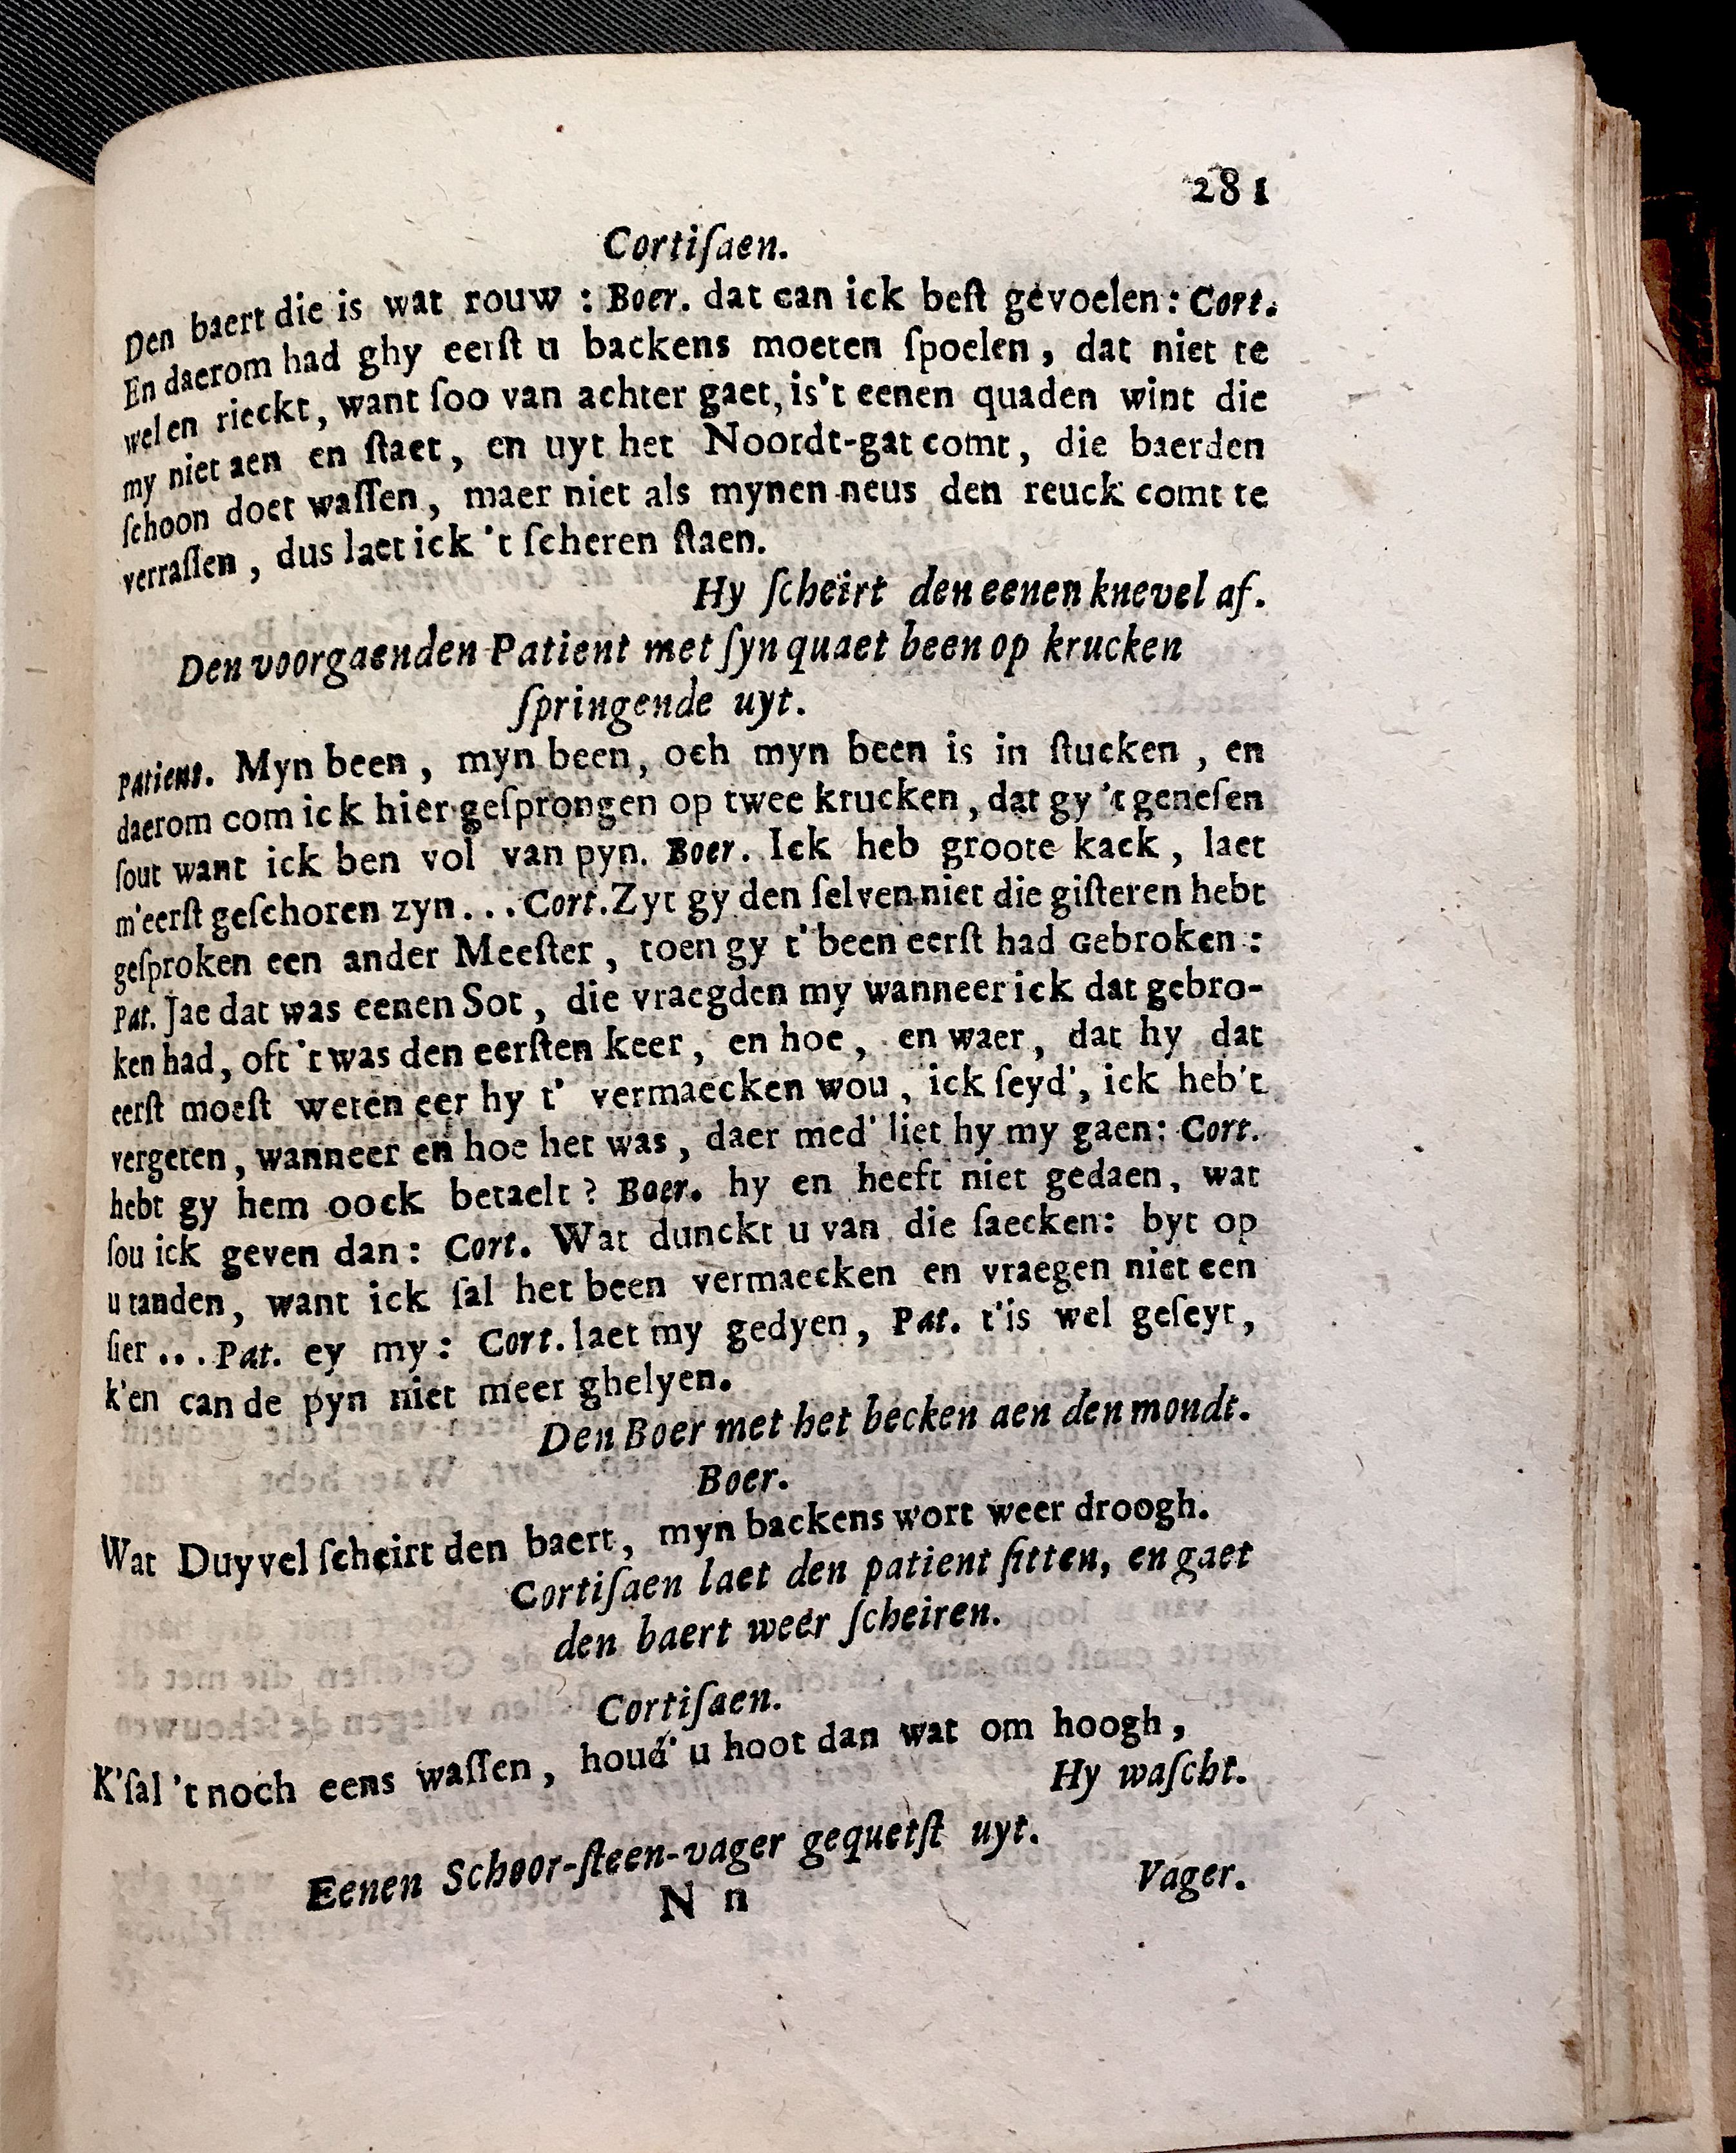 281
Cortiſaen.
Den baert die is wat rouw : Boer. dat can ick beſt gevoelen : Cort.
En daerom had ghy eerſt u backens moeten ſpoelen, dat niet te
wel en rieckt, want ſoo van achter gaet, is't eenen quaden wint die
my niet aen en ſtaet, en uyt het Noordt-gat comt, die baerden
ſchoon doet waſſen, maer niet als mynen neus den reuck comt te
verraſſen, dus laet ick 't ſcheren ſtaen.
Hy ſcheirt den eenen knevel af.
Den voorgaenden Patient met ſyn quaet been op krucken
ſpringende uyt.
Patient. Myn been, myn been, och myn been is in ſtucken, en
daerom com ick hier geſprongen op twee krucken, dat gy 't geneſen
ſout want ick ben vol van pyn. Boer. Ick heb groote kack, laet
m'eerſt geſchoren zyn... Cort. Zyt gy den ſelven niet die giſteren hebt
geſproken een ander Meeſter, toen gy t' been eerſt had Gebroken :
Pat. Jae dat was eenen Sot, die vraegden my wanneer ick dat gebro-
ken had, oft 't was den eerſten keer, en hoe, en waer, dat hy dat
eerſt moeſt weten eer hy t' vermaecken wou, ick ſeyd', ick heb't
vergeten, wanneer en hoe het was, daer med' liet hy my gaen: Cort.
hebt gy hem oock betaelt? Boer. hy en heeft niet gedaen, wat
ſou ick geven dan: Cort. Wat dunckt u van die ſaecken: byt op
u tanden, want ick ſal het been vermaecken en vraegen niet een
ſier ... Pat. ey my: Cort. laet my gedyen, Pat. t'is wel geſeyt,
k'en can de pyn niet meer ghelyen.
Den Boer met het becken aen den mondt.
Boer.
Wat Duyvel ſcheirt den baert, myn backens wort weer droogh.
Cortiſaen laet den patient ſitten, en gaet
den baert weer ſcheiren.
Cortiſaen.
K'ſal 't noch eens waſſen, houd' u hoot dan wat om hoogh,
Hy waſcht.
Eenen Schoor-ſteen-vager gequetſt uyt.
N n
Vager.